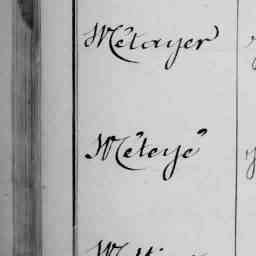 Métayer
Méteyé